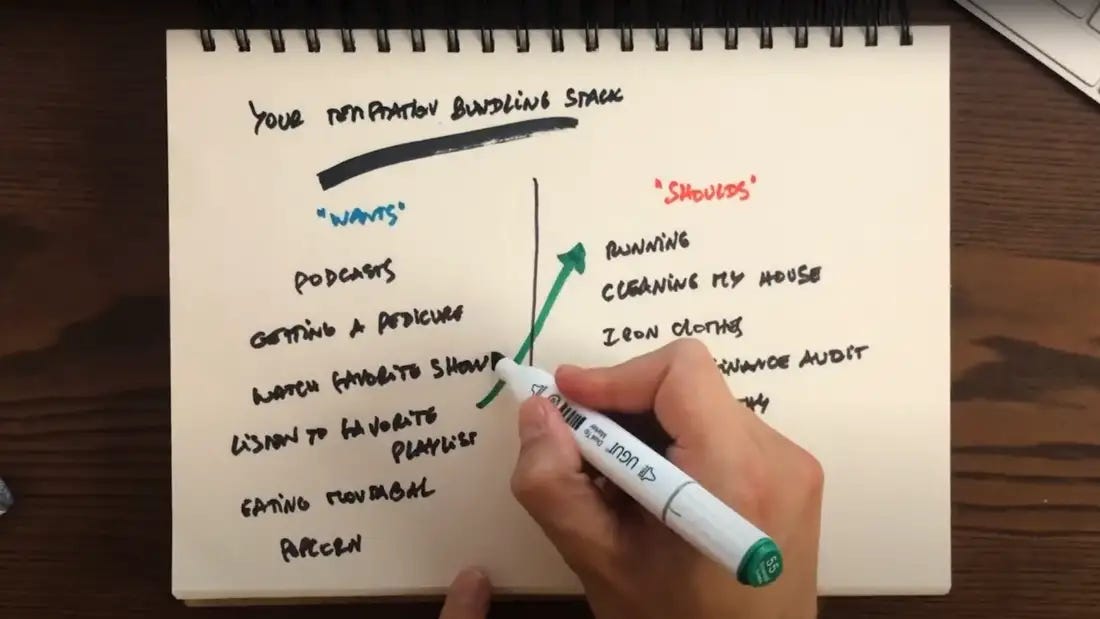 YOUR TEMPTATION BUNDLING STACK
"WANTS"
PODCASTS
GETTING A PEDICURE
WATCH FAVORITE SHOW
LISTEN TO FAVORITE
PLAYLIST
EATING
POPCORN
"SHOULDS"
RUNNING
CLEANING MY HOUSE
IRON CLOTHES
INANCE AUDIT
UGUI
Dual Tip
Marker
55